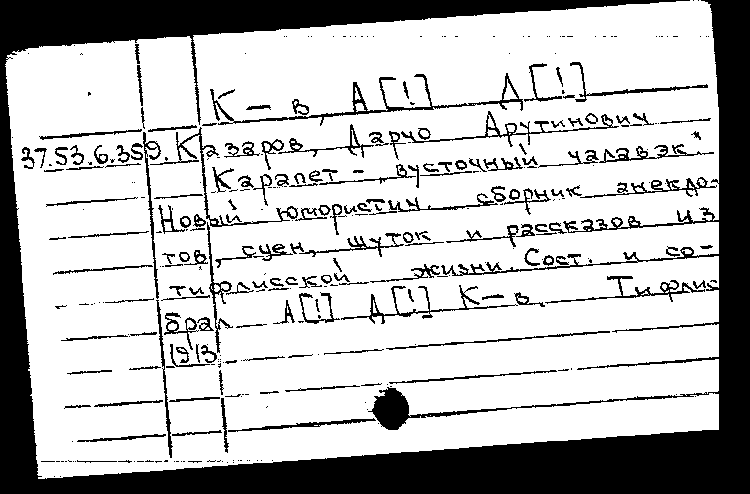 К — в, А [!] Д [!]
37.53.6.359. Казаров, Дарчо Арутинович
Карапет -, вусточный чалавэк".
Новый юмористич. сборник анекдо-
тов, сцен, шуток и рассказов из
тифлисской жизни. Сост. и со-
брал А [!] Д [!] К—в. Тифлис
1913